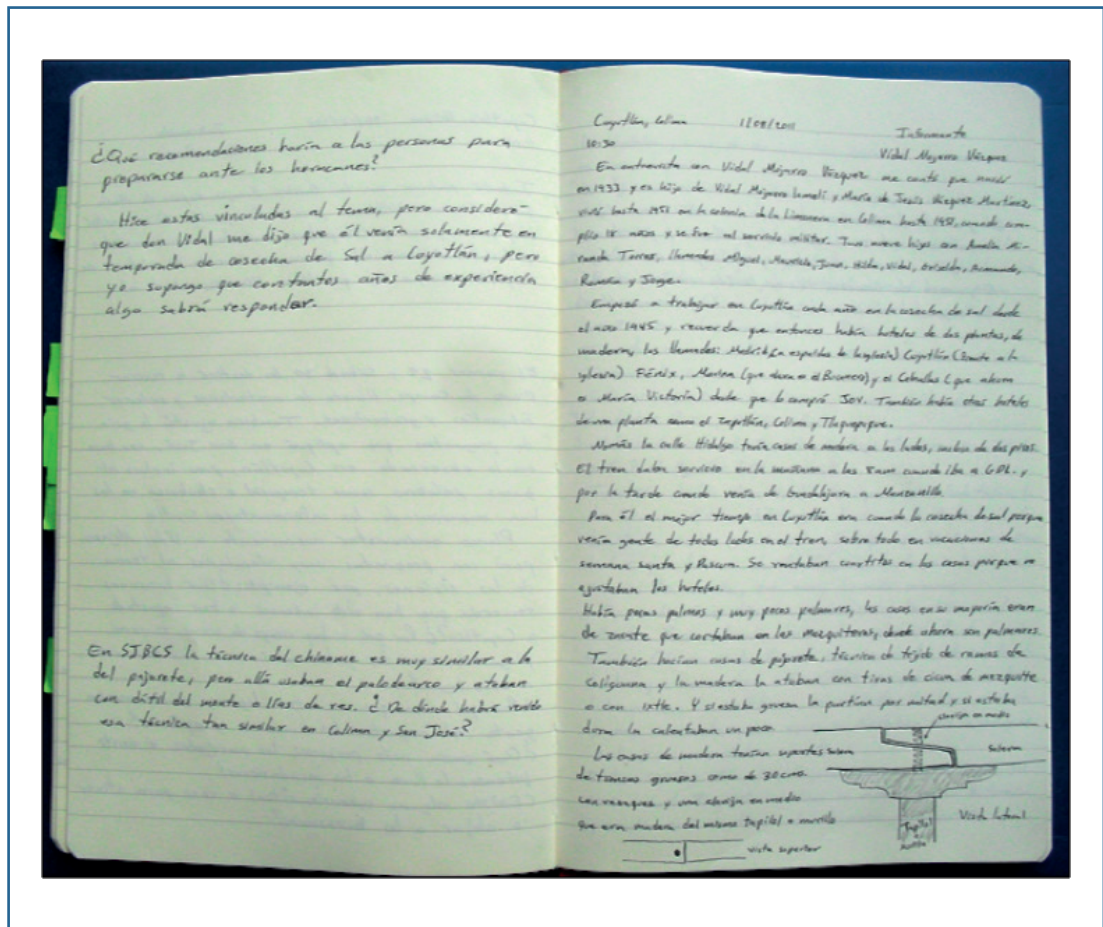 ¿Qué recomendaciones haría a las personas para
prepararse ante los huracanes?
Hice estas vinculadas al tema, pero consideré
que don Vidal me dijo que él venía solamente en
temporada de cosecha de Sal a Cuyutlán, pero
yo supongo que con tantos años de experiencia
algo sabrá responder.
En SJBCS la técnica del chiname es muy similar a la
del pajarete, pero allá usaban el palo de arco y ataban
con dátil del monte o lías de res. ¿De dónde habrá venido
esa técnica tan similar en Colima y San José?
Cuyutlán, Colima 11/08/2011 Informante
10:30 Vidal Mojarro Vázquez
En entrevista con Vidal Mojarro Vázquez me contó que nació
en 1933 y es hijo de Vidal Mojarro y María de Jesús Vázquez Martínez,
vivió hasta 1951 en la colonia de la limonera en Colima hasta 1951, cuando cum-
plió 18 años y se fue al servicio militar. Tuvo nueve hijos con Amelia Mi-
randa Torres, llamados Miguel, Marcela, Juan, Hilda, Vidal, Griselda, Armando,
Ramón y Jorge.
Empezó a trabajar en Cuyutlán cada año en la cosecha de sal desde
el año 1945 y recuerda que entonces había hoteles de dos plantas, de
madera, los llamados: Madrid (a espaldas de la iglesia) Cuyutlán (frente a la
iglesia) Fénix, Morelia (que ahora es el Bucanero) y el Ceballos (que ahora
es María Victoria) desde que lo compró. También había otros hoteles
de una planta como el Zapotlán, Colima y Tlaquepaque.
Nomás la calle Hidalgo tenía casas de madera a los lados, incluso de dos pisos.
El tren daba servicio en la mañana a las 8 am cuando iba a GDL. y
por la tarde cuando venía de Guadalajara a Manzanillo.
Para él el mejor tiempo en Cuyutlán era cuando la cosecha de sal porque
venía gente de todos lados en el tren, sobre todo en vacaciones de
semana santa y Pascua. Se rentaban cuartitos en las casas porque no
ajustaban los hoteles.
Había pocas palmas y muy pocos palmares, las casas en su mayoría eran
de zacate que cortaban en las mezquiteras, donde ahora son palmares.
También hacían casas de pajarete, técnica de tejido de ramas de
coliguana y la madera la ataban con tiras de cicua de mezquite
o con ixtle. Y si estaba gruesa la partían por mitad y si estaba
dura la calentaban un poco.
Las casas de madera tenían soportes
de troncos gruesos como de 30 cms.
con ranques y una clavija en medio
que era madera del mismo tapilol o morillo
clavija en medio
Solera Solera
Vista lateral
Tapilol
o
morillo
vista superior